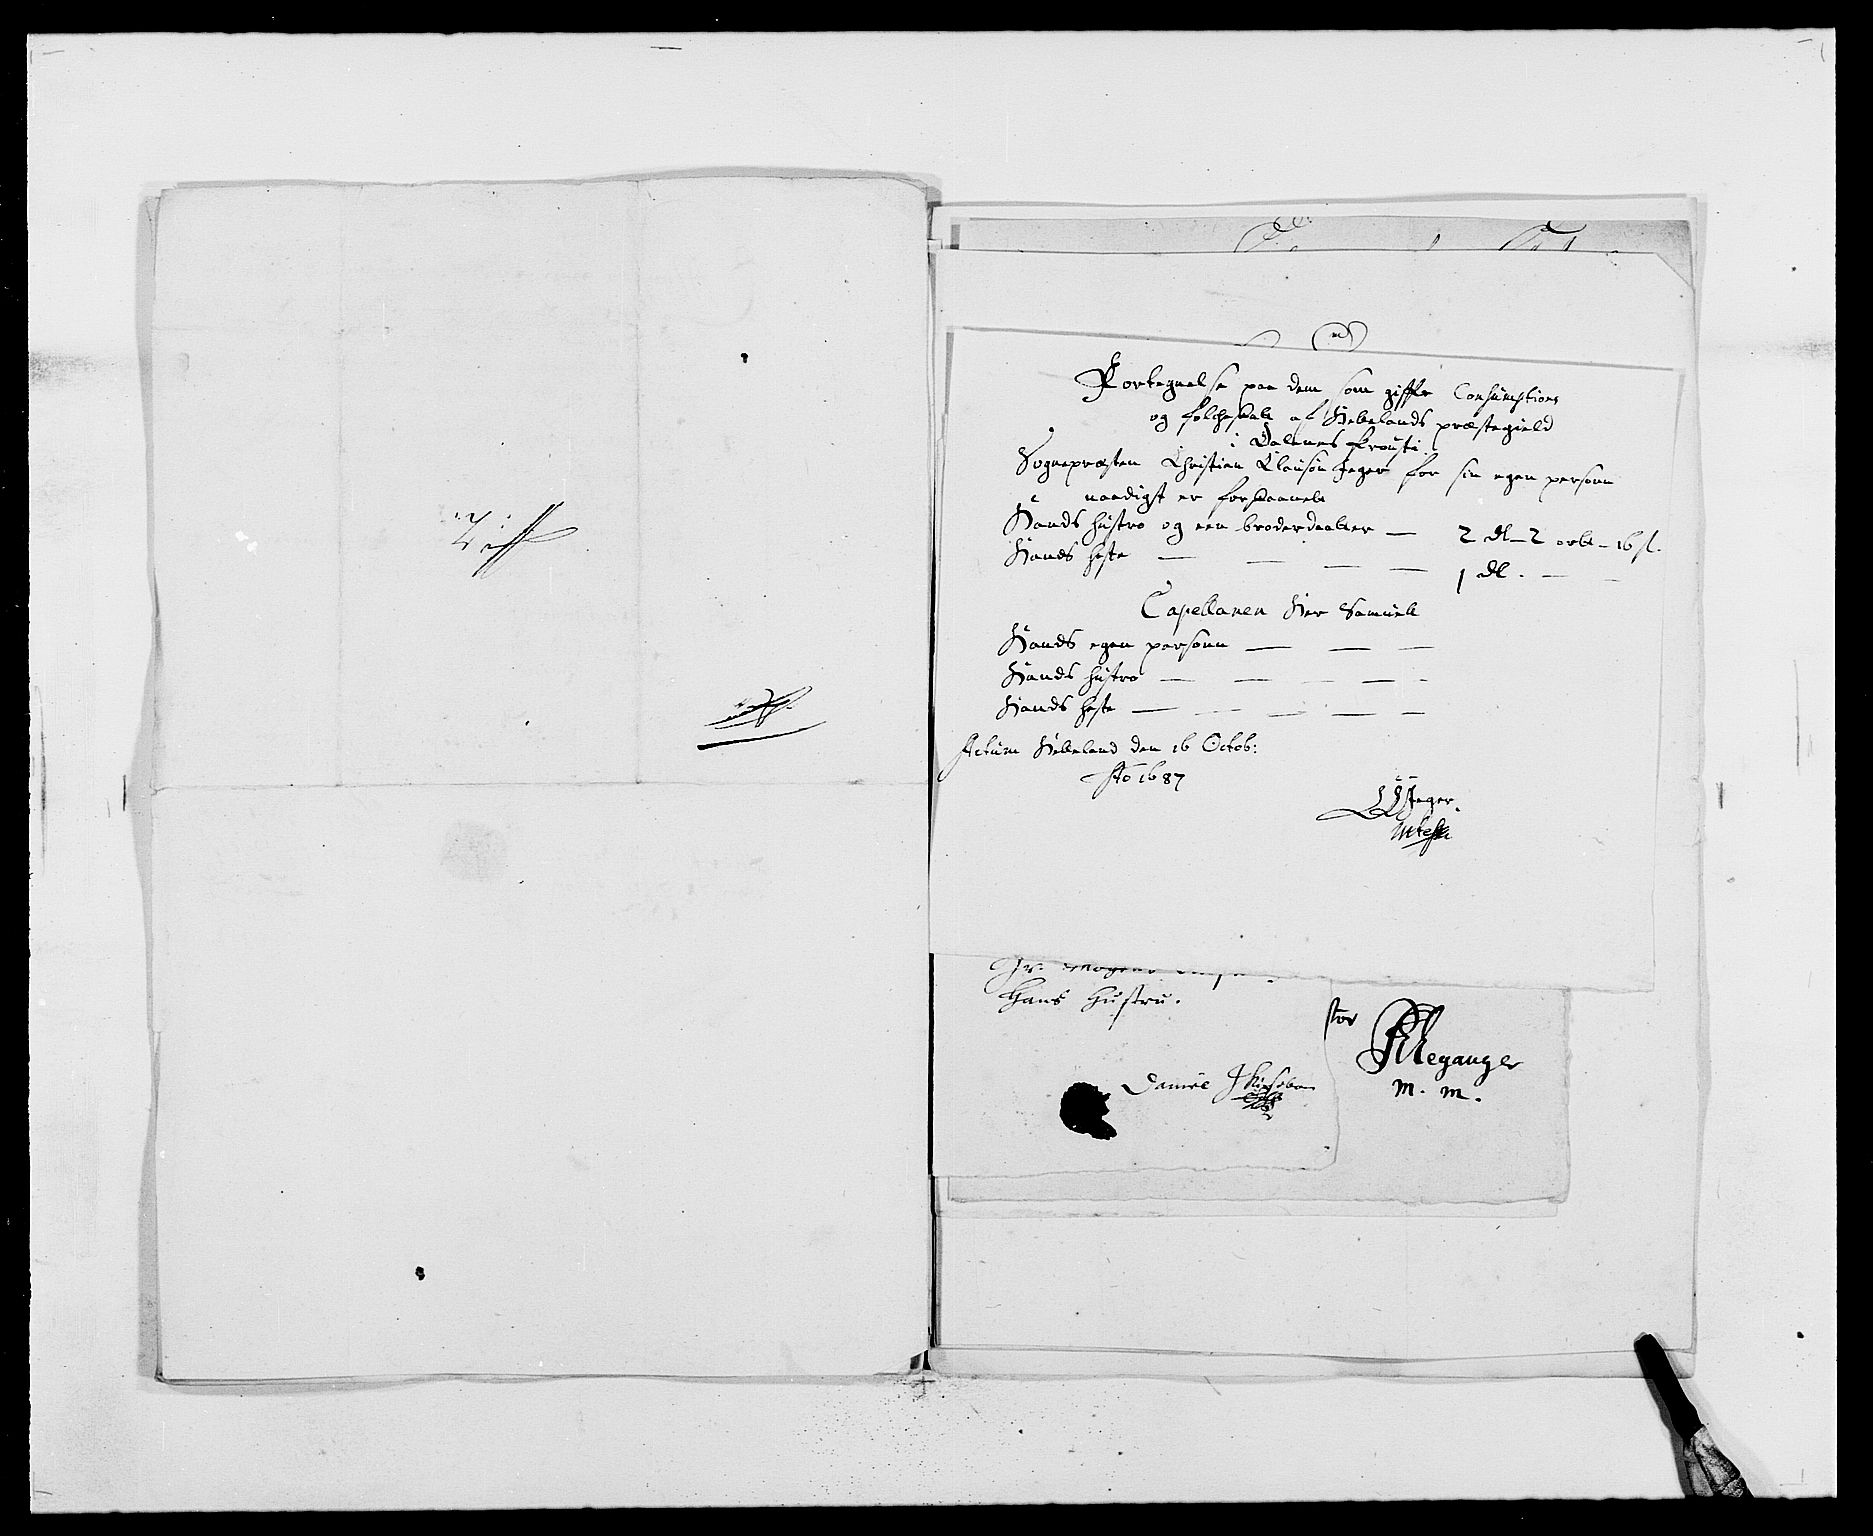 Fortegnelse paa dem som giffve Consumptions
og folcheskatt af Helelands præstegield
i Dalenes Prousti.
Sognepræsten Christien Clausøn Jeger for sin egen persoon
naadigst er forskaanet
Hands hustro og een broderdaatter — 2 dl – 2 ort – 16 s.
Hands heste — — — — 1 dl. — —
Capellanen Her Samuell
Hands egen persoon — — —
Hands hustro — — — — -
Hands heste — — — — —
Actum Heleland den 16 Octob:
Ao 1687
CCJeger.
Hr. Mogens
Hans Hustru.
Daniel